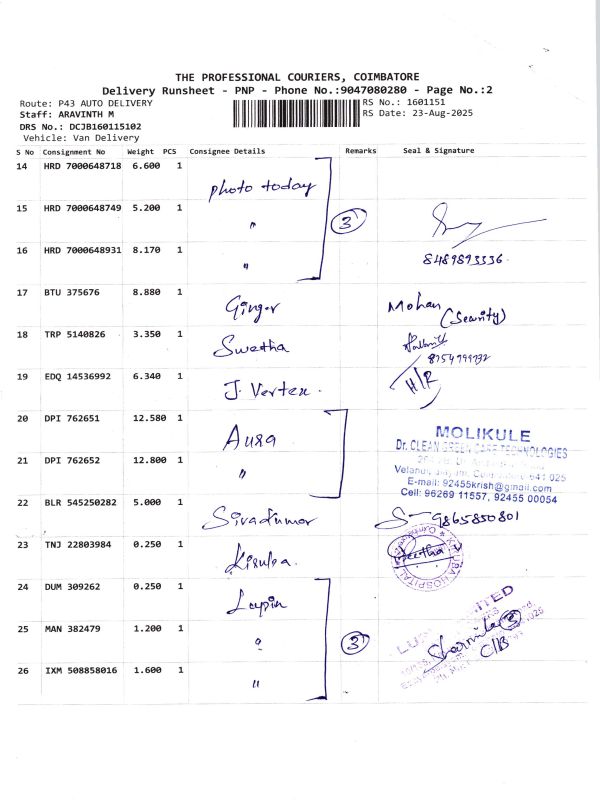 THE PROFESSIONAL COURIERS, COIMBATORE
Delivery Runsheet - PNP - Phone No.:9047080280 - Page No.:2
Route: P43 AUTO DELIVERY RS No.: 1601151
Staff: ARAVINTH M RS Date: 23-Aug-2025
DRS No.: DCJB160115102
Vehicle: Van Delivery
S No Consignment No Weight PCS Consignee Details Remarks Seal & Signature
14 HRD 7000648718 6.600 1 photo today
15 HRD 7000648749 5.200 1 " 3
16 HRD 7000648931 8.170 1 " 8489893336.
17 BTU 375676 8.880 1 Ginger Mohan (Security)
18 TRP 5140826 3.350 1 Swetha
19 EDQ 14536992 6.340 1 J. Vertex. H/R
20 DPI 762651 12.580 1 Aura
21 DPI 762652 12.800 1 "
MOLIKULE
Dr. CLEAN GREEN CARE TECHNOLOGIES
641 025
E-mail: 92455krish@gmail.com
Cell: 96269 11557, 92455 00054
22 BLR 545250282 5.000 1 Sivakumar 9865850801
23 TNJ 22803984 0.250 1 HOSPITAL
24 DUM 309262 0.250 1 Lupin
25 MAN 382479 1.200 1 " 3 Sharmila 3
26 IXM 508858016 1.600 1 "